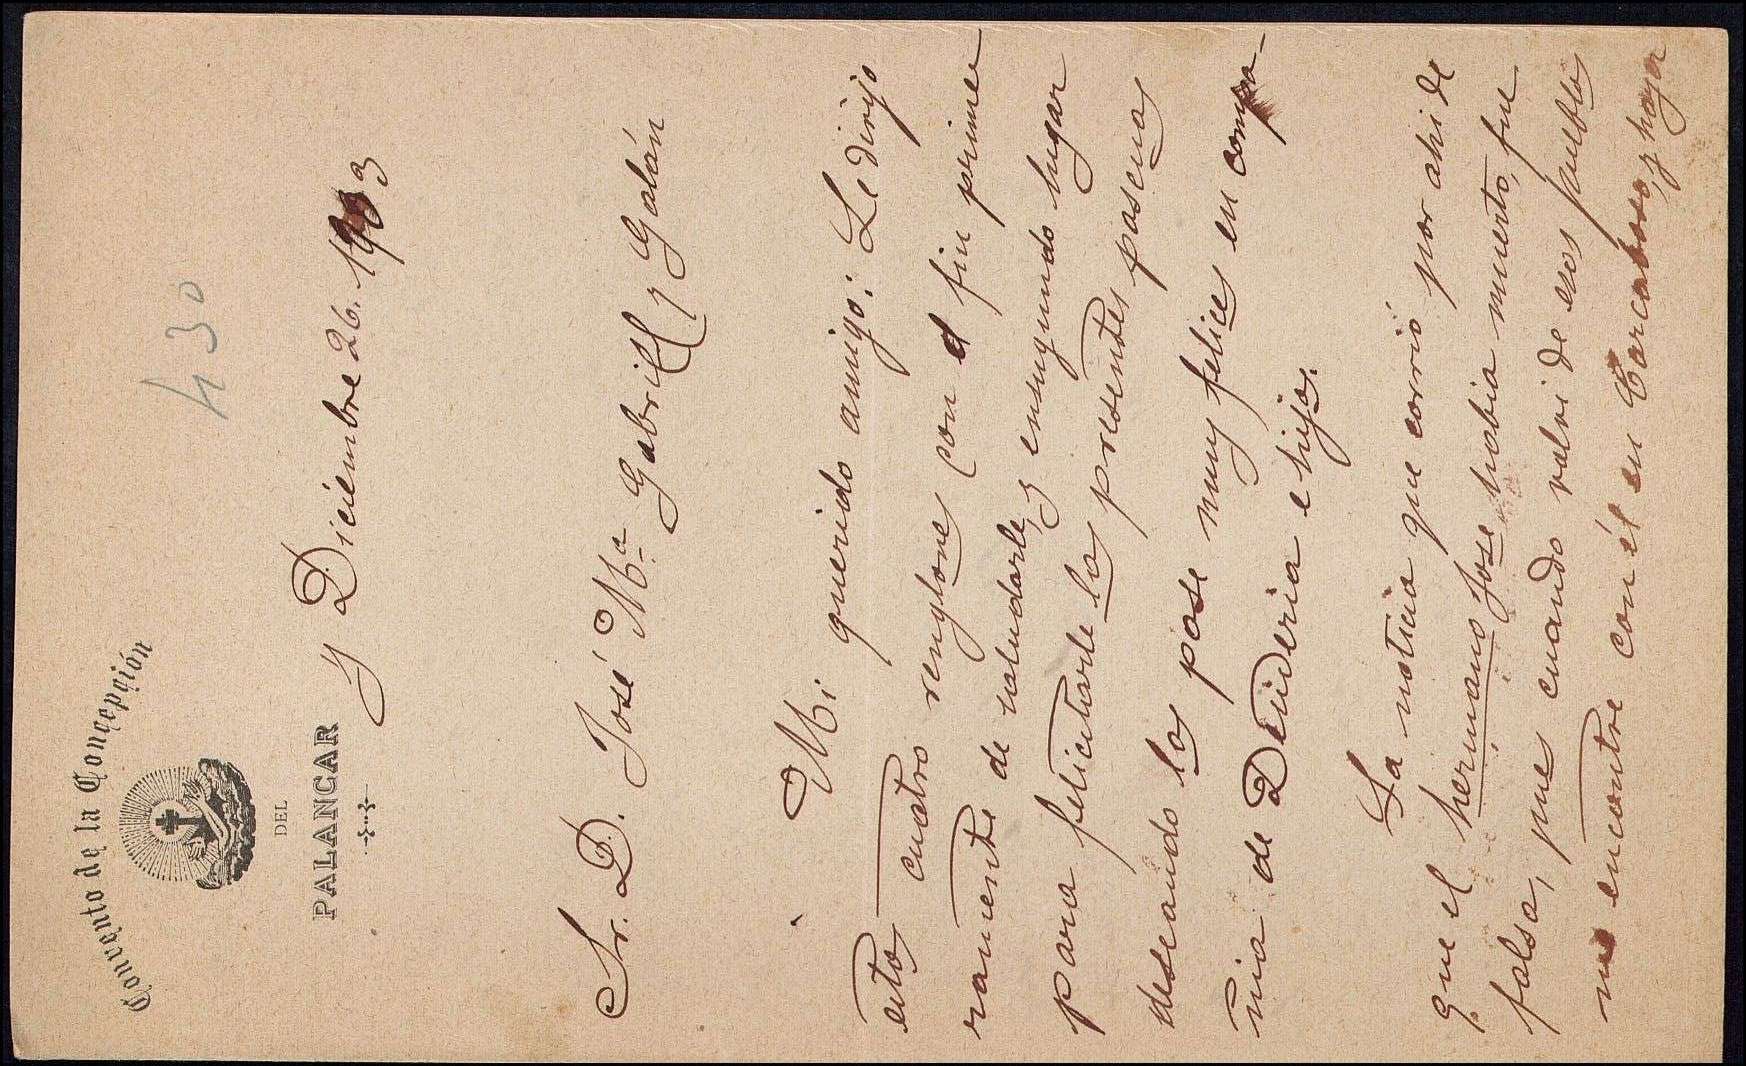 430
Convento de la Concepción
DEL
PALANCAR
y Diciembre 26. 1903
Sr. D. José Mª. Gabriel y Galán
Mi querido amigo: Le dirijo
estos cuatro renglones con el fin prime
ramente de saludarle, y ensegundo lugar
para felicitarle las presentes pascuas
deseando las pase muy felices en compa-
ñia de Desideria e hijos.
La noticia que corrió por ahi de
que el hermano Jose habia muerto, fue
falsa, pues cuando volvi de esos pueblos
me encontre con él en Carcaboso, y haya